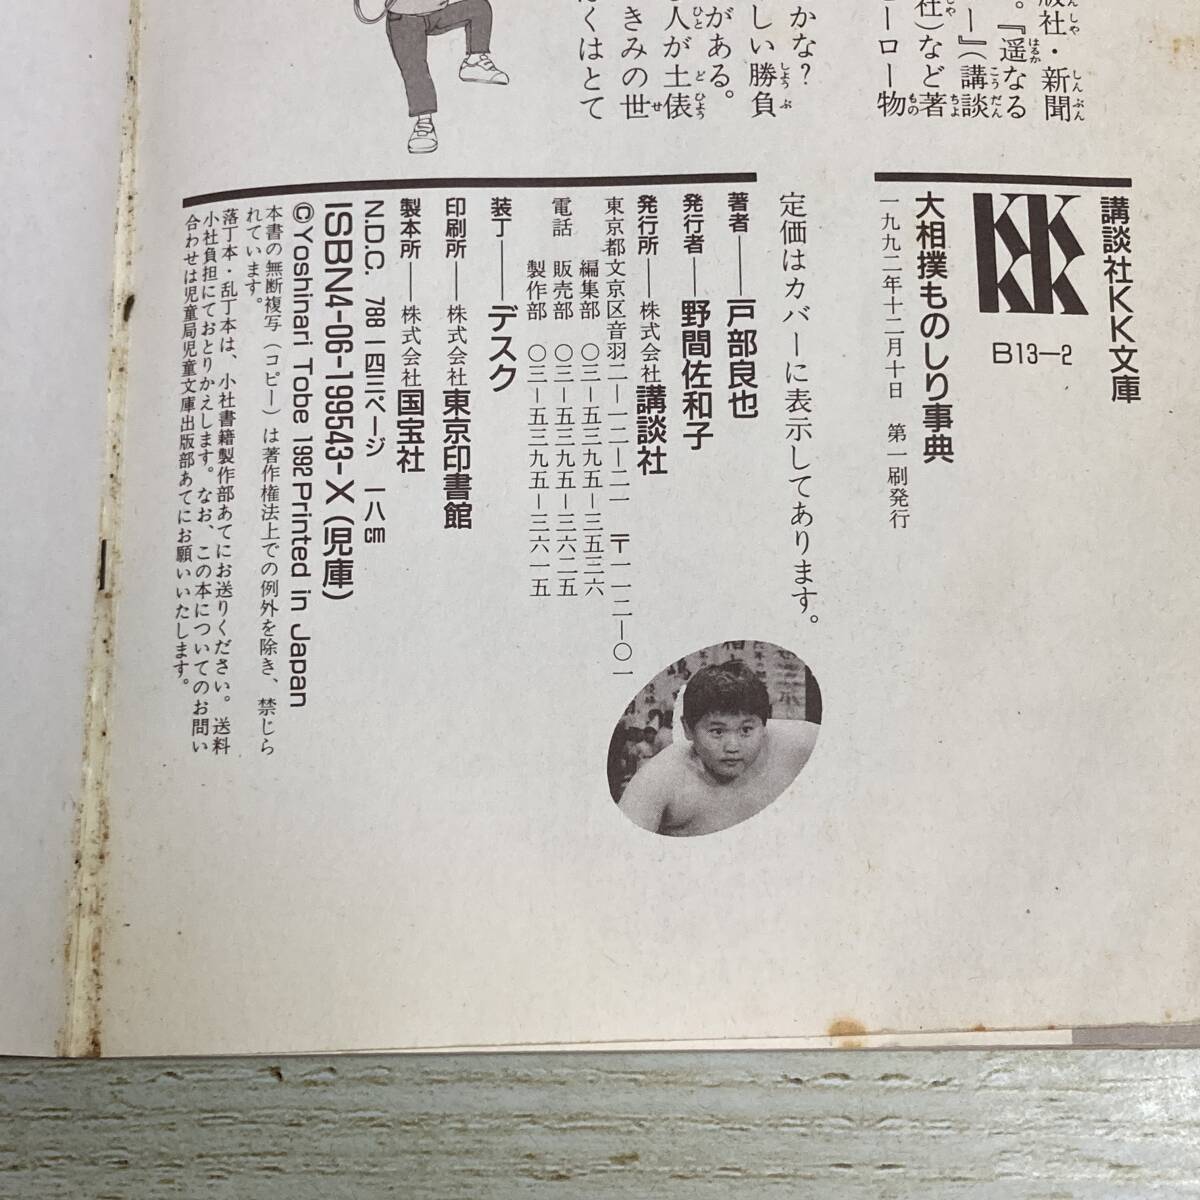 版社・新聞
。『遥なる
ー』(講談
社)など著
ーロー物
かな?
しい勝負
がある。
人が土俵
きみの世
くはとて
講談社KK文庫
KK
KK
B13-2
大相撲ものしり事典
一九九二年十二月十日 第一刷発行
定価はカバーに表示してあります。
著者——戸部良也
発行者——野間佐和子
発行所——株式会社講談社
東京都文京区音羽二-一二-二一 〒一一二-〇一
電話
編集部 〇三-五三九五-三五三六
販売部 〇三-五三九五-三六二五
製作部 〇三-五三九五-三六一五
装丁——デスク
印刷所——株式会社東京印書館
製本所——株式会社国宝社
N.D.C. 788 一四三ページ 一八cm
ISBN4-06-199543-X (児庫)
©Yoshinari Tobe 1992 Printed in Japan
本書の無断複写(コピー)は著作権法上での例外を除き、禁じら
れています。
落丁本・乱丁本は、小社書籍製作部あてにお送りください。送料
小社負担にておとりかえします。なお、この本についてのお問い
合わせは児童局児童文庫出版部あてにお願いいたします。